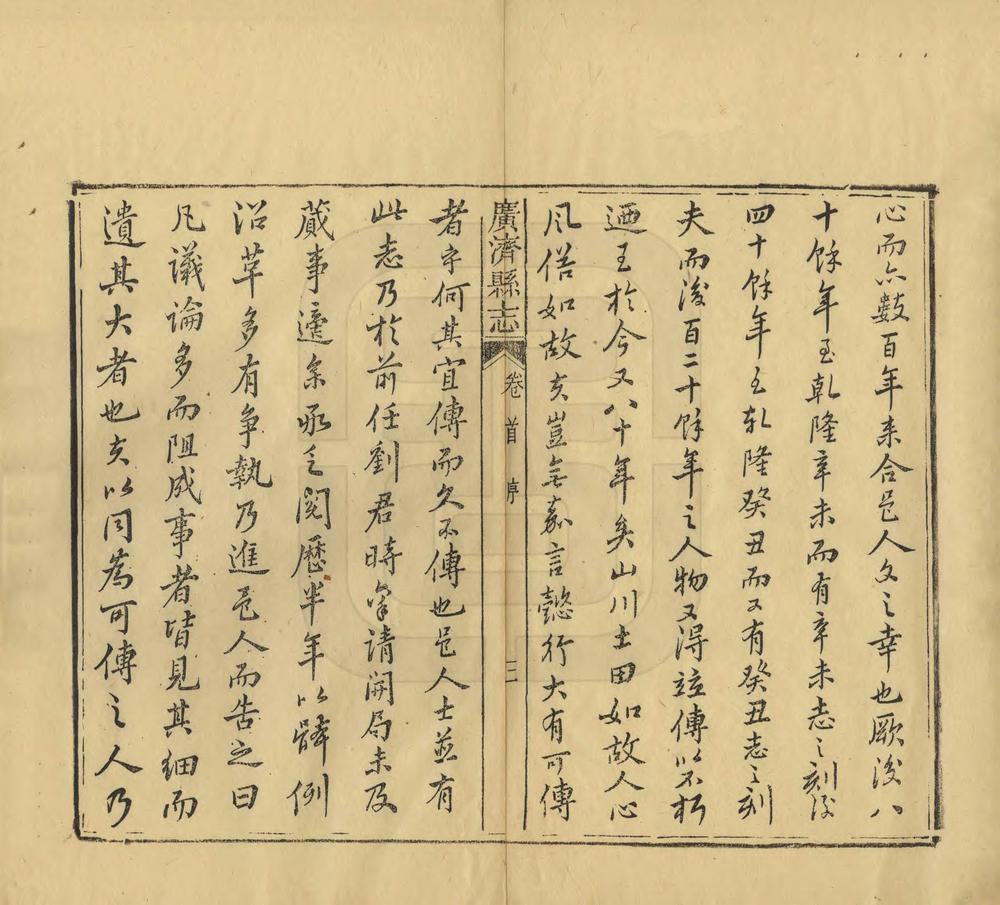 心而亦數百年来合邑人文之幸也厥後八
十餘年至乾隆辛未而有辛未志之刻後
四十餘年又乾隆癸丑而又有癸丑志之刻
夫而後百二十餘年之人物又得竝傳以不朽
迺至於今又八十年矣山川土田如故人心
風俗如故夫豈無嘉言懿行大有可傳
廣濟縣志
卷首
序
三
者乎何其宜傳而久不傳也邑人士並有
此志乃於前任劉君時稟請開局未及
蕆事適余承乏閱歷半年以體例
沿革多有爭執乃進邑人而告之曰
凡議論多而阻成事者皆見其細而
遺其大者也夫以同為可傳之人乃